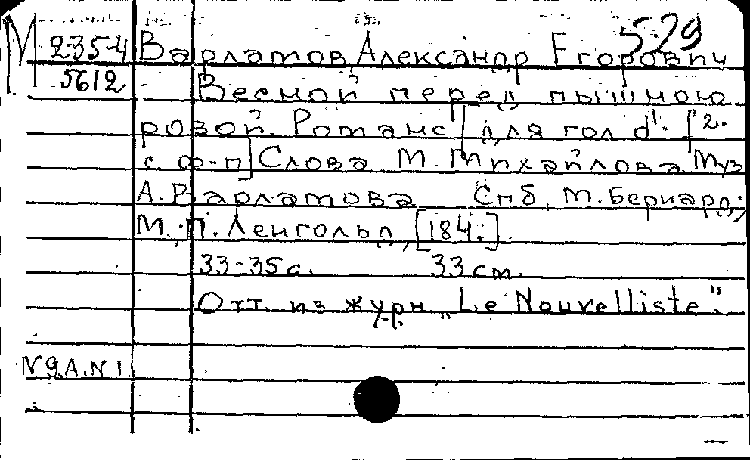 529
М 235-4 Варламов, Александр Егорович
5612 Весной перед пышною
розой. Романс [для гол d'. f 2.
с ф-п] Слова М. Михайлова Муз
А. Варламова Спб, М. Бернард;
М., П. Ленгольд, [184.]
33-35 с. 33 cm.
Отт. из журн „Le Nouvelliste".